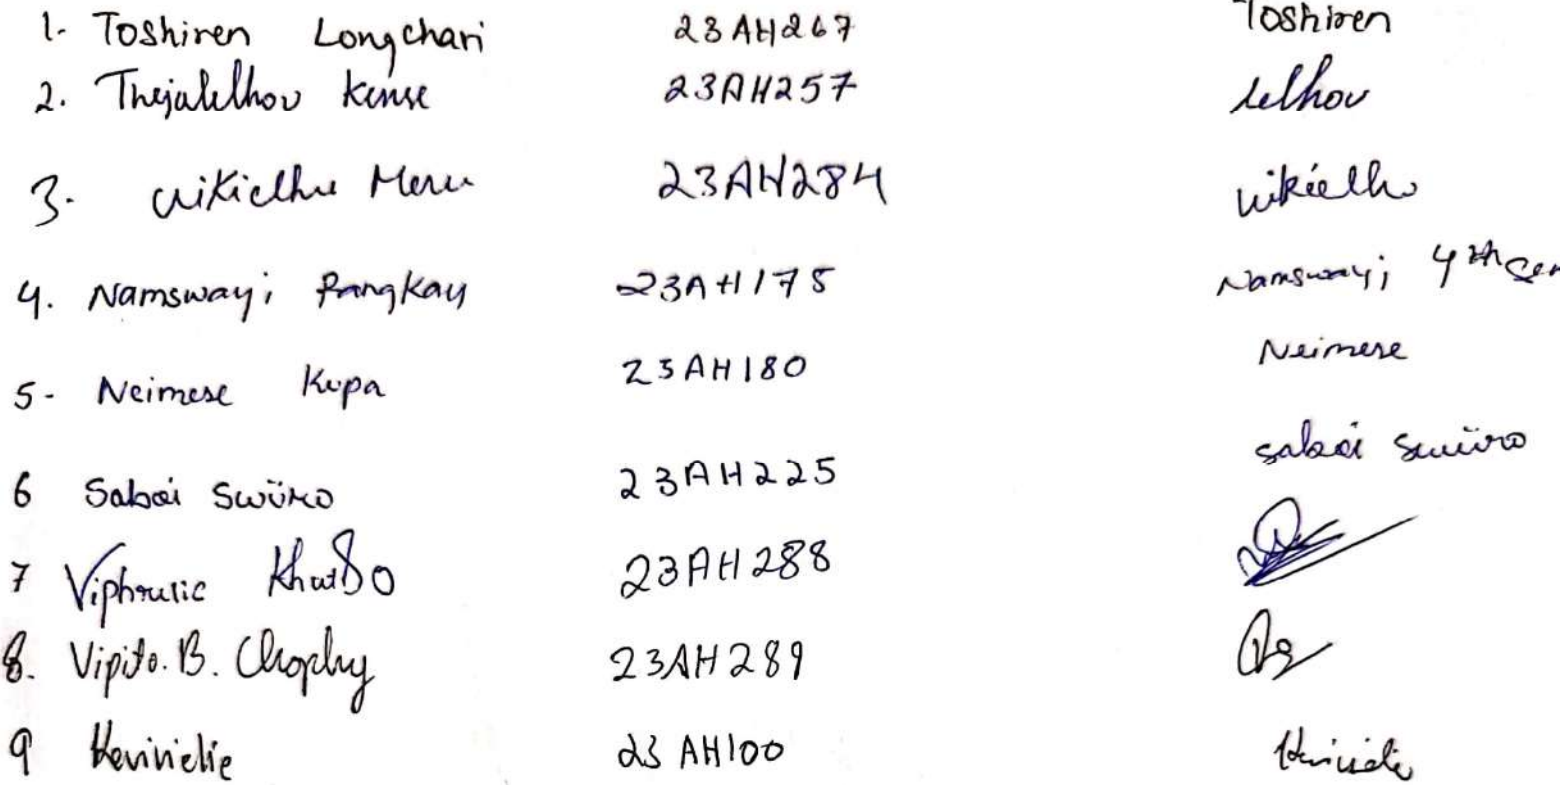 1. Toshiren Longchari 23AH267 Toshiren
2. Thejalelhou Kense 23AH257 lelhou
3. Vikielhu Meru 23AH284 Vikielhu
4. Namswayi Pangkay 23AH175 Namswayi 4th Sem
5- Neimese Kupa 23AH180 Neimese
6 Saboi Swüro 23AH225 Saboi Swüro
7 23AH288
8. Vipito. B. Chophy 23AH289
9 Kevinielie 23AH100